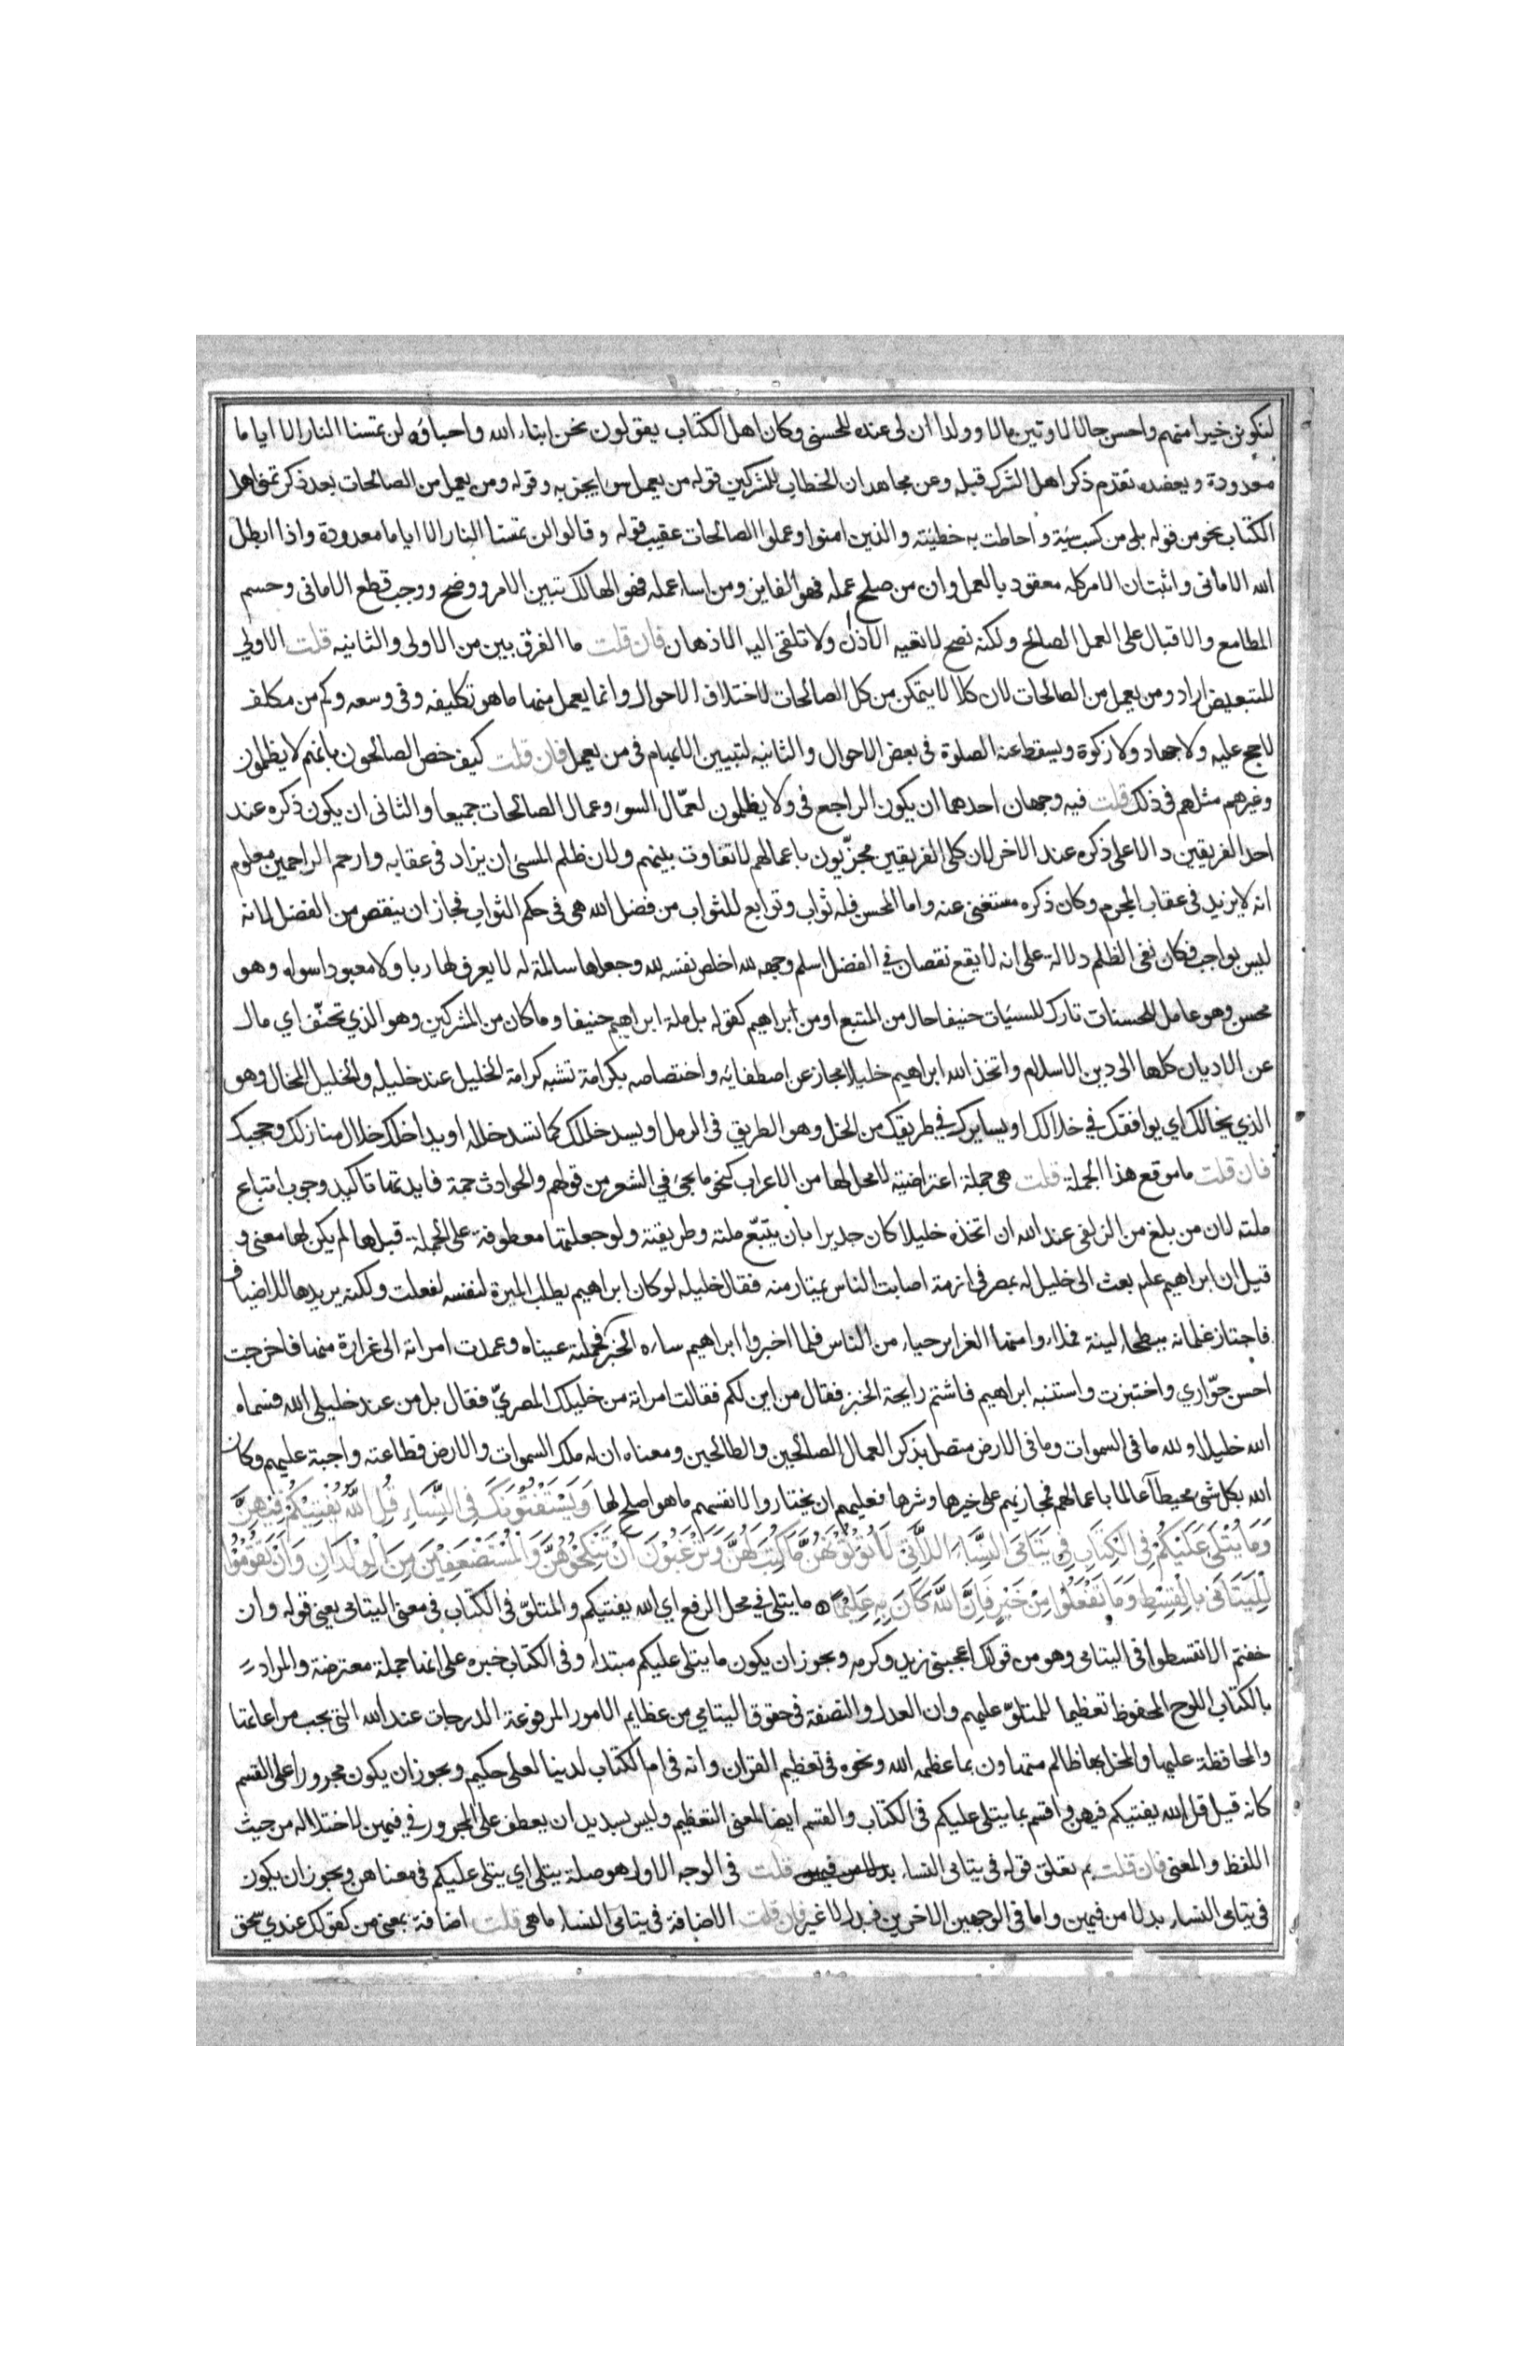 لنكونن خيرا منهم واحسن حالا لاوتين مالا وولدا ان لى عنده للحسنى وكان اهل الكتاب يقولون نحن ابناء الله واحباؤه لن تمسنا النار الا اياما
معدودة ويعضده تقدم ذكر اهل الشرك قبله وعن مجاهد ان الخطاب للمشركين قوله من يعمل سوءا يجز به وقوله ومن يعمل من الصالحات بعد ذكر تمنى اهل
الكتاب نحو من قوله بلى من كسب سيئة واحاطت به خطيئته والذين امنوا وعملوا الصالحات عقيب قوله وقالوا لن تمسنا النار الا اياما معدودة واذا ابطل
الله الامانى واثبت ان الامر كله معقود بالعمل وان من صلح عمله فهو الفايز ومن اساء عمله فهو الهالك تبين الامر ووضح ووجب قطع الامانى وحسم
المطامع والاقبال على العمل الصالح ولكنه نصح لا تعيه الآذان ولا تلقى اليه الاذهان فان قلت ما الفرق بين من الاولى والثانيه قلت الاولي
للتبعيض اراد ومن يعمل من الصالحات لان كلا لا يتمكن من كل الصالحات لاختلاف الاحوال وانما يعمل منها ما هو تكليفه وفى وسعه وكم من مكلف
لا حج عليه ولا جهاد ولا زكوة ويسقط عنه الصلوة فى بعض الاحوال والثانيه لتبيين الابهام فى من يعمل فان قلت كيف خص الصالحون بانهم لا يظلمون
وغيرهم مثلهم فى ذلك قلت فيه وجهان احدهما ان يكون الراجع فى ولا يظلمون لعمّال السوء وعمال الصالحات جميعا والثانى ان يكون ذكره عند
احد الفريقين دالا على ذكره عند الاخر لان كلى الفريقين مجزّيون باعمالهم لا تفاوت بينهم ولان ظلم المسئ ان يزاد فى عقابه وارحم الراحمين معلوم
انه لا يزيد فى عقاب المجرم وكان ذكره مستغنى عنه واما المحسن فله ثواب وتوابع للثواب من فضل الله هى فى حكم الثواب فجاز ان ينقص من الفضل لانه
ليس بواجب فكان نفى الظلم دلالة على انه لا يقع نقصان في الفضل اسلم وجهه لله اخلص نفسه لله وجعلها سالمة له لا يعرف لها ربا ولا معبودا سواه وهو
محسن وهو عامل للحسنات تارك للسيئات حنيفا حال من المتبع او من ابراهيم كقوله بل ملة ابراهيم حنيفا وما كان من المشركين وهو الذي تحنّف اي مال
عن الاديان كلها الى دين الاسلام واتخذ الله ابراهيم خليلا مجاز عن اصطفائه واختصاصه بكرامة تشبه كرامة الخليل عند خليله والخليل المخال وهو
الذي يخالك اي يوافقك في خلالك او يسايرك في طريقك من الخل وهو الطريق فى الرمل او يسد خللك كما تسد خلله او يداخلك خلال منازلك وحجبك
فان قلت ما موقع هذا الجملة قلت هى جملة اعتراضية لا محل لها من الاعراب كنحو ما يجئ في الشعر من قولهم والحوادث جمة فايدتها تاكيد وجوب اتباع
ملته لان من بلغ من الزلفى عند الله ان اتخذه خليلا كان جديرا بان يتبّع ملته وطريقته ولو جعلتها معطوفة على الجملة قبلها لم يكن لها معنى و
قيل ان ابراهيم علم بعث الى خليل له بمصر فى ازمة اصابت الناس يمتار منه فقال خليله لو كان ابراهيم يطلب الميرة لنفسه لفعلت ولكنه يريدها للاضياف
فاجتاز غلمانه ببطحاء لينة فملاءوا منها الغراير حياء من الناس فلما اخبروا ابراهيم ساءه الخبر فحملته عيناه وعمدت امراته الى غرارة منها فاخرجت
احسن حوّاري واختبزت واستنبه ابراهيم فاشتم رايحة الخبز فقال من اين لكم فقالت امراته من خليلك المصريّ فقال بل من عند خليلى الله فسماه
الله خليلا ولله ما فى السموات وما فى الارض متصل بذكر العمال الصالحين والطالحين ومعناه ان له ملك السموات والارض فطاعته واجبة عليهم وكان
الله بكل شئ محيطا عالما باعمالهم فمجازيهم على خيرها وشرها فعليهم ان يختاروا لانفسهم ما هو اصلح لها وَيَسْتَفْتُونَكَ فِى النِّسَاءِ قُلِ اللهُ يُفْتِيْكُمْ فِيْهِنَّ
وَمَا يُتْلَى عَلَيْكُمْ فِى الْكِتَابِ فِي يَتَامَى النِّسَاءِ اللَّاتِى لَا تُؤْتُوْنَهُنَّ مَا كُتِبَ لَهُنَّ وَتَرْغَبُوْنَ اَنْ تَنْكِحُوْهُنَّ وَالْمُسْتَضْعَفِيْنَ مِنَ الْوِلْدَانِ وَاَنْ تَقُوْمُوْا
لِلْيَتَامَى بِالْقِسْطِ وَمَا تَفْعَلُوْا مِنْ خَيْرٍ فَاِنَّ اللّهَ كَانَ بِهِ عَلِيْمًا ه ما يتلى في محل الرفع اي الله يفتيكم والمتلوّ فى الكتاب فى معنى اليتامى يعنى قوله وان
خفتم الا تقسطوا فى اليتامى وهو من قولك اعجبنى زيد وكرمه ويجوز ان يكون ما يتلى عليكم مبتدا وفى الكتاب خبره على انها جملة معترضة والمراد
بالكتاب اللوح المحفوظ تعظيما للمتلوّ عليهم وان العدل والنصفة فى حقوق اليتامي من عظايم الامور المرفوعة الدرجات عند الله التى يجب مراعاتها
والمحافظة عليها والمخل بها ظالم متهاون بما عظمه الله ونحوه فى تعظيم القران وانه فى ام الكتاب لدينا لعلى حكيم ويجوز ان يكون مجرورا على القسم
كانه قيل قل الله يفتيكم فيهن واقسم بما يتلى عليكم فى الكتاب والقسم ايضا لمعنى التعظيم وليس بسديد ان يعطف على المجرور في فيهن لاختلاله من حيث
اللفظ والمعنى فان قلت بم تعلق قوله فى يتامى النساء قلت فى الوجه الاول هو صلة يتلى اي يتلى عليكم فى معناهن ويجوز ان يكون
فى يتامى النساء بدلا من فيهن واما فى الوجهين الاخرين فبدل لا غير فان قلت الاضافة فى يتامى النساء ما هى قلت اضافة بمعنى من كقولك عندي سحق